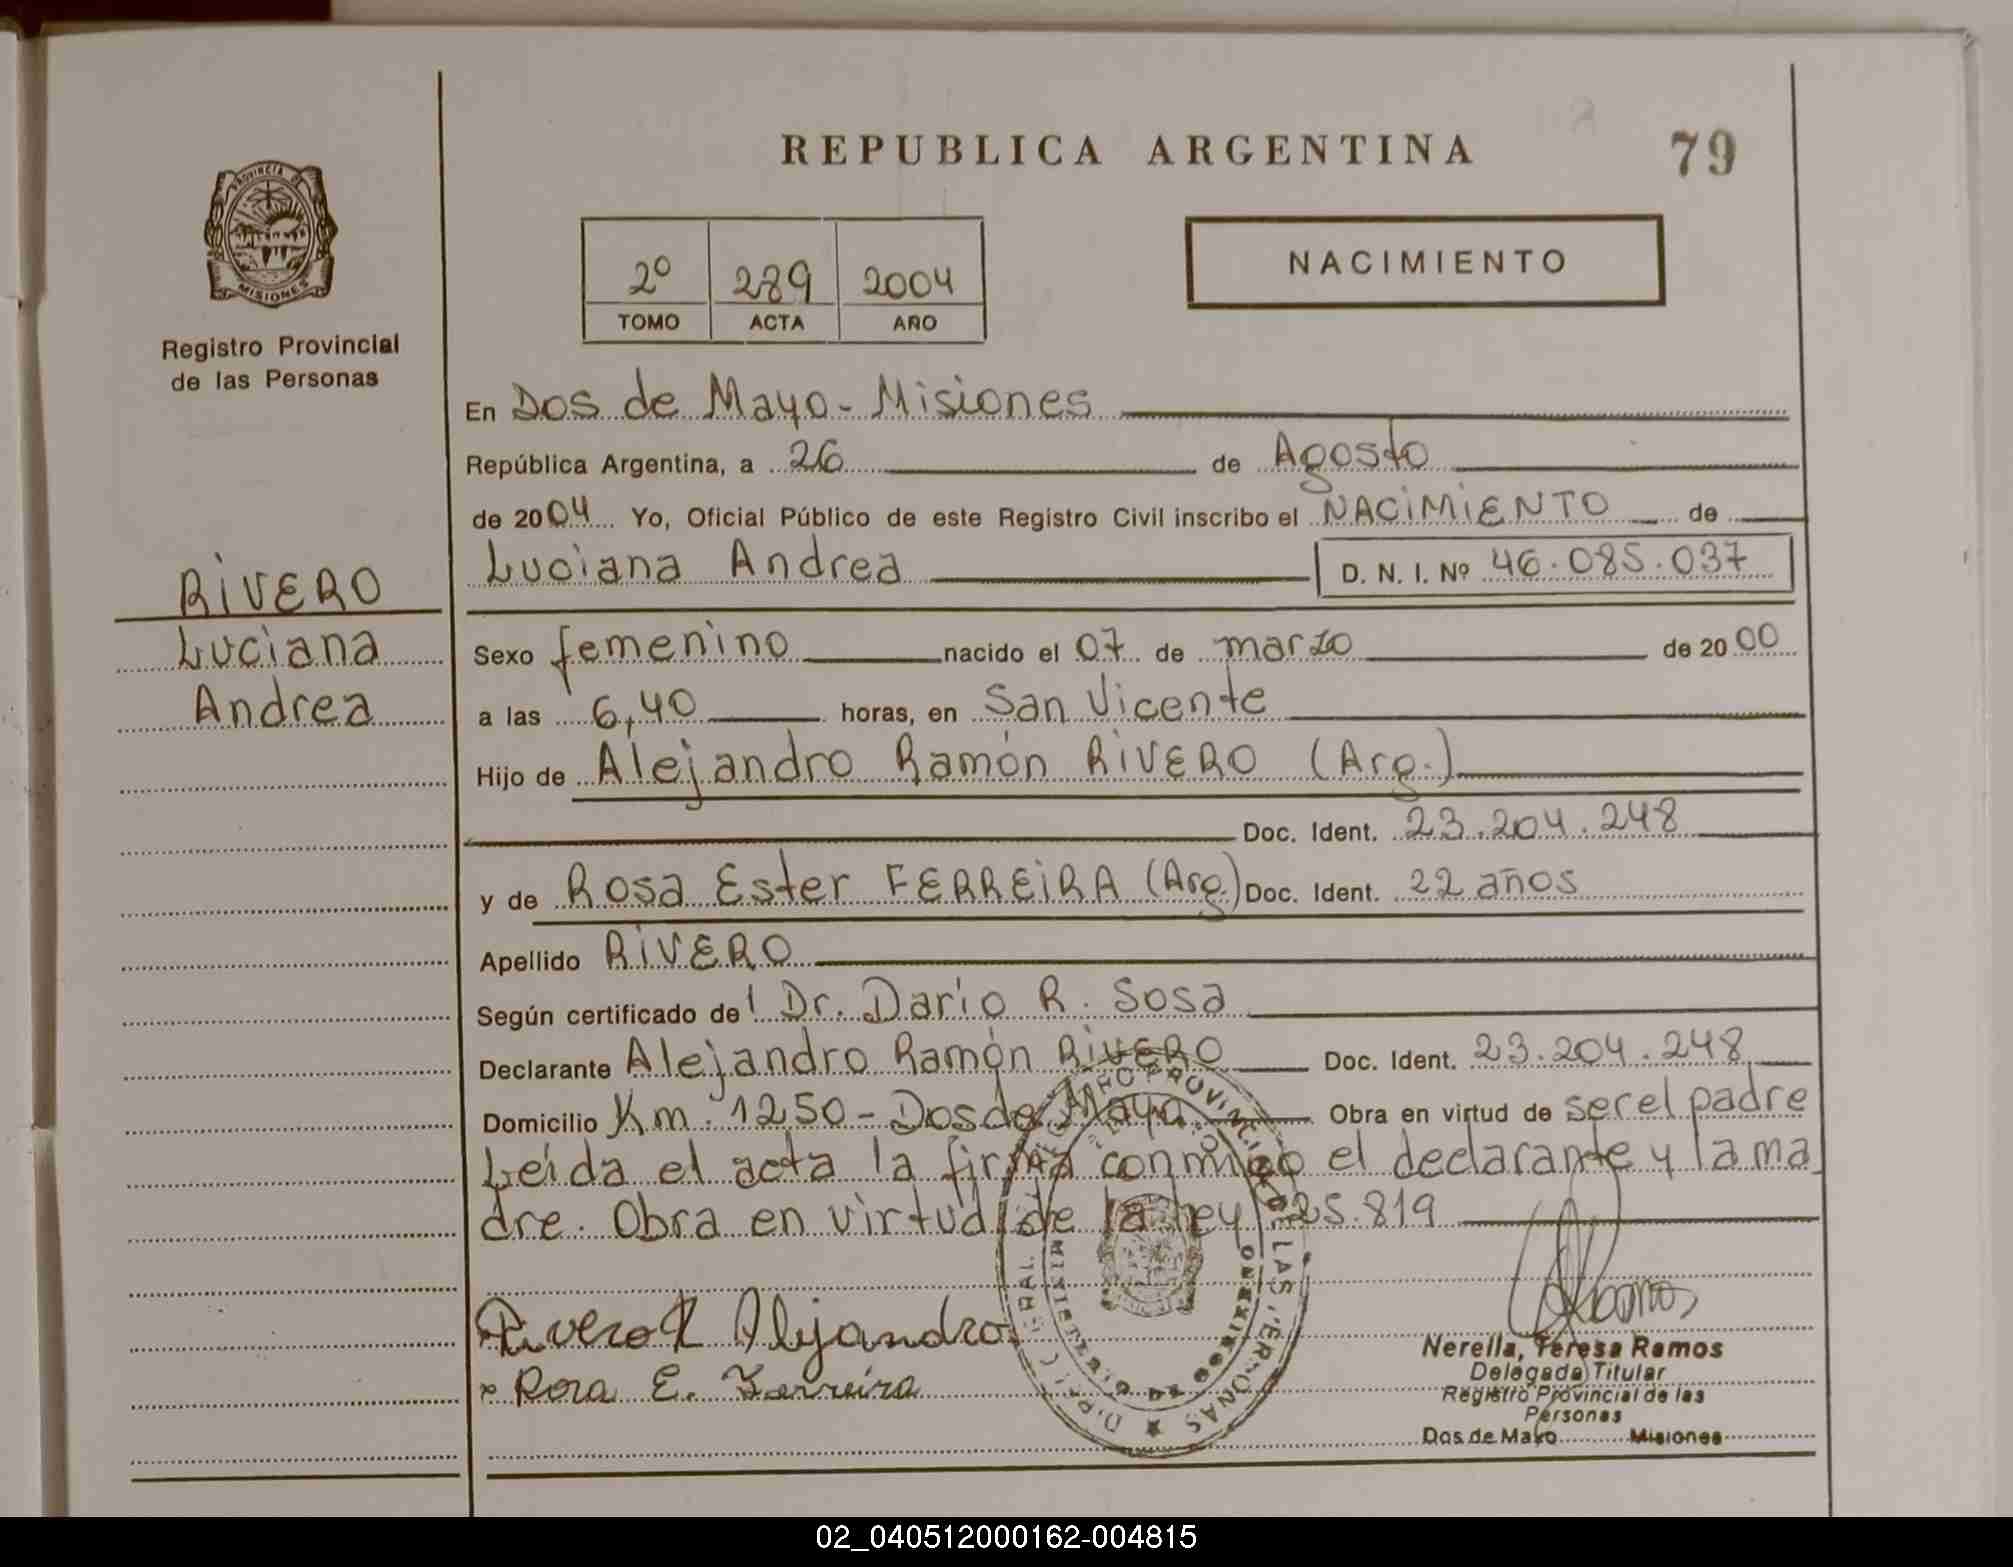 REPUBLICA ARGENTINA
79
PROVINCIA DE
MISIONES
Registro Provincial
de las Personas
2º 289 2004
TOMO ACTA AÑO
NACIMIENTO
En Dos de Mayo - Misiones
República Argentina, a 26 de Agosto
de 2004 Yo, Oficial Público de este Registro Civil inscribo el NACIMIENTO de
Luciana Andrea D. N. I. Nº 46.085.037
RIVERO
Luciana
Andrea
Sexo femenino nacido el 07 de marzo de 2000
a las 6,40 horas, en San Vicente
Hijo de Alejandro Ramón RIVERO (Arg.)
Doc. Ident. 23.204.248
y de Rosa Ester FERREIRA (Arg.) Doc. Ident. 22 años
Apellido RIVERO
Según certificado del Dr. Darío R. Sosa
Declarante Alejandro Ramón RIVERO Doc. Ident. 23.204.248
Domicilio Km. 1250 - Dos de Mayo Obra en virtud de ser el padre
Leída el acta la firma conmigo el declarante y la ma
dre. Obra en virtud de la ley 25.819
Rivero R Alejandro
Rosa E. Ferreira
Nerella, Teresa Ramos
Delegada Titular
Registro Provincial de las
Personas
Dos de Mayo Misiones
02_040512000162-004815